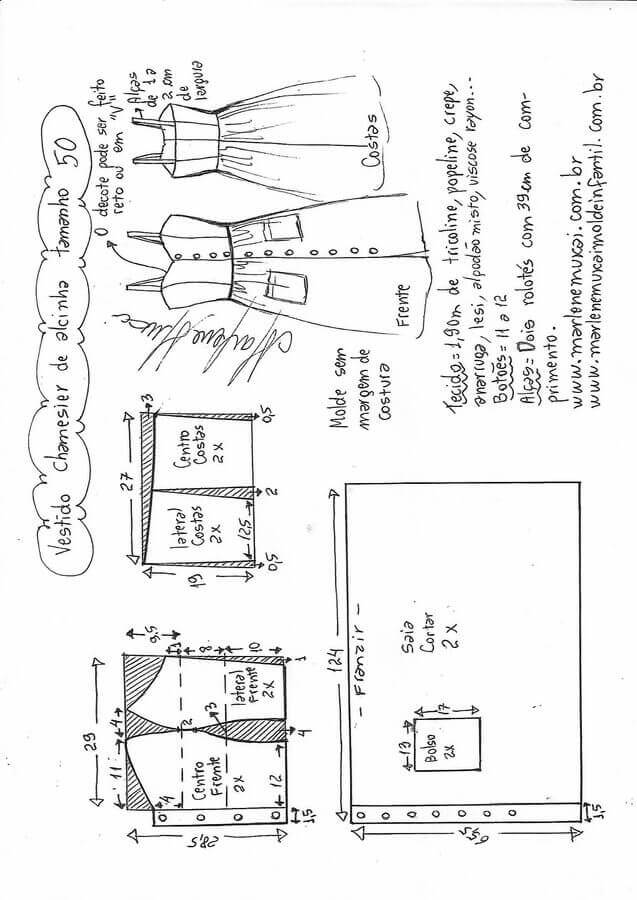 Vestido chamesier de alcinha tamanho 50
O decote pode ser feito
reto ou em "V"
Alças
de 1 a
2 cm
de
largura
Costas
Frente
Marlene Mukai
Molde sem
margem de
costura
27
3
19
Centro
Costas
2x
lateral
Costas
2x
12,5
0,5
2
0,5
29
11
4
9,5
4
2
3
8
10
Centro
Frente
2x
lateral
Frente
2x
12
4
1
28,5
1,5
124
- Franzir -
Saia
Cortar
2x
13
17
Bolso
2x
1,5
Tecido = 1,90m de tricoline, popeline, crepe,
anarruga, lesi, algodão misto, viscose rayon...
Botões = 11 a 12
Alças = Dois rolotés com 39cm de com-
primento.
www.marlenemukai.com.br
www.marlenemukaimoldeinfantil.com.br